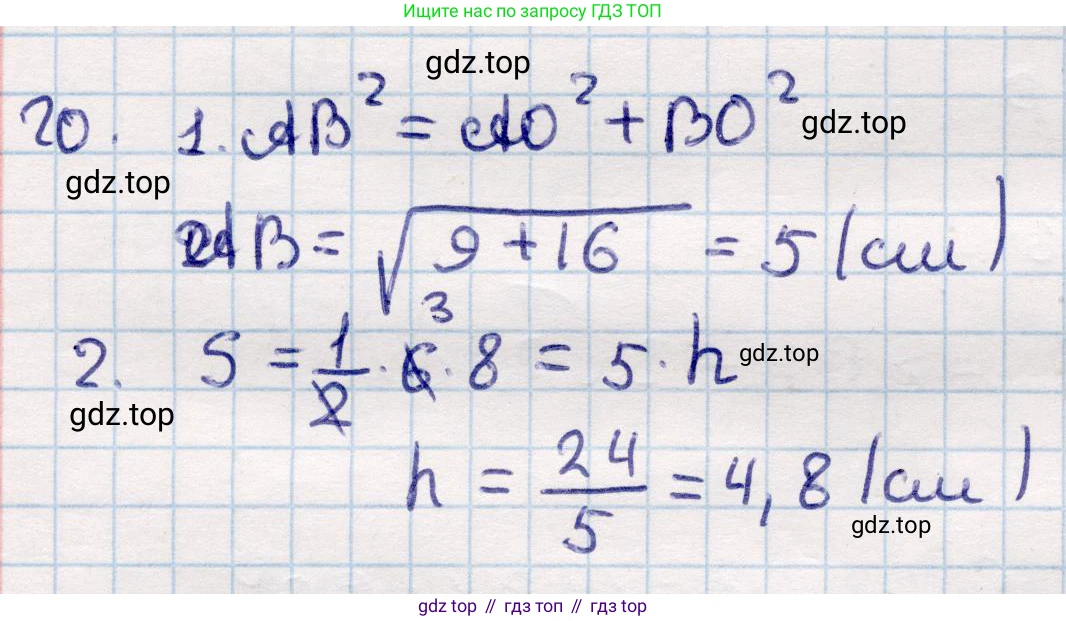 Ищите нас по запросу ГДЗ ТОП
gdz.top
20. 1. AB² = AO² + BO²
gdz.top
gdz.top
AB = √(9 + 16) = 5 (см)
3
2. S = 1/2 · 6 · 8 = 5 · h
gdz.top
gdz.top
h = 24/5 = 4,8 (см)
gdz.top
gdz top // гдз топ // гдз top